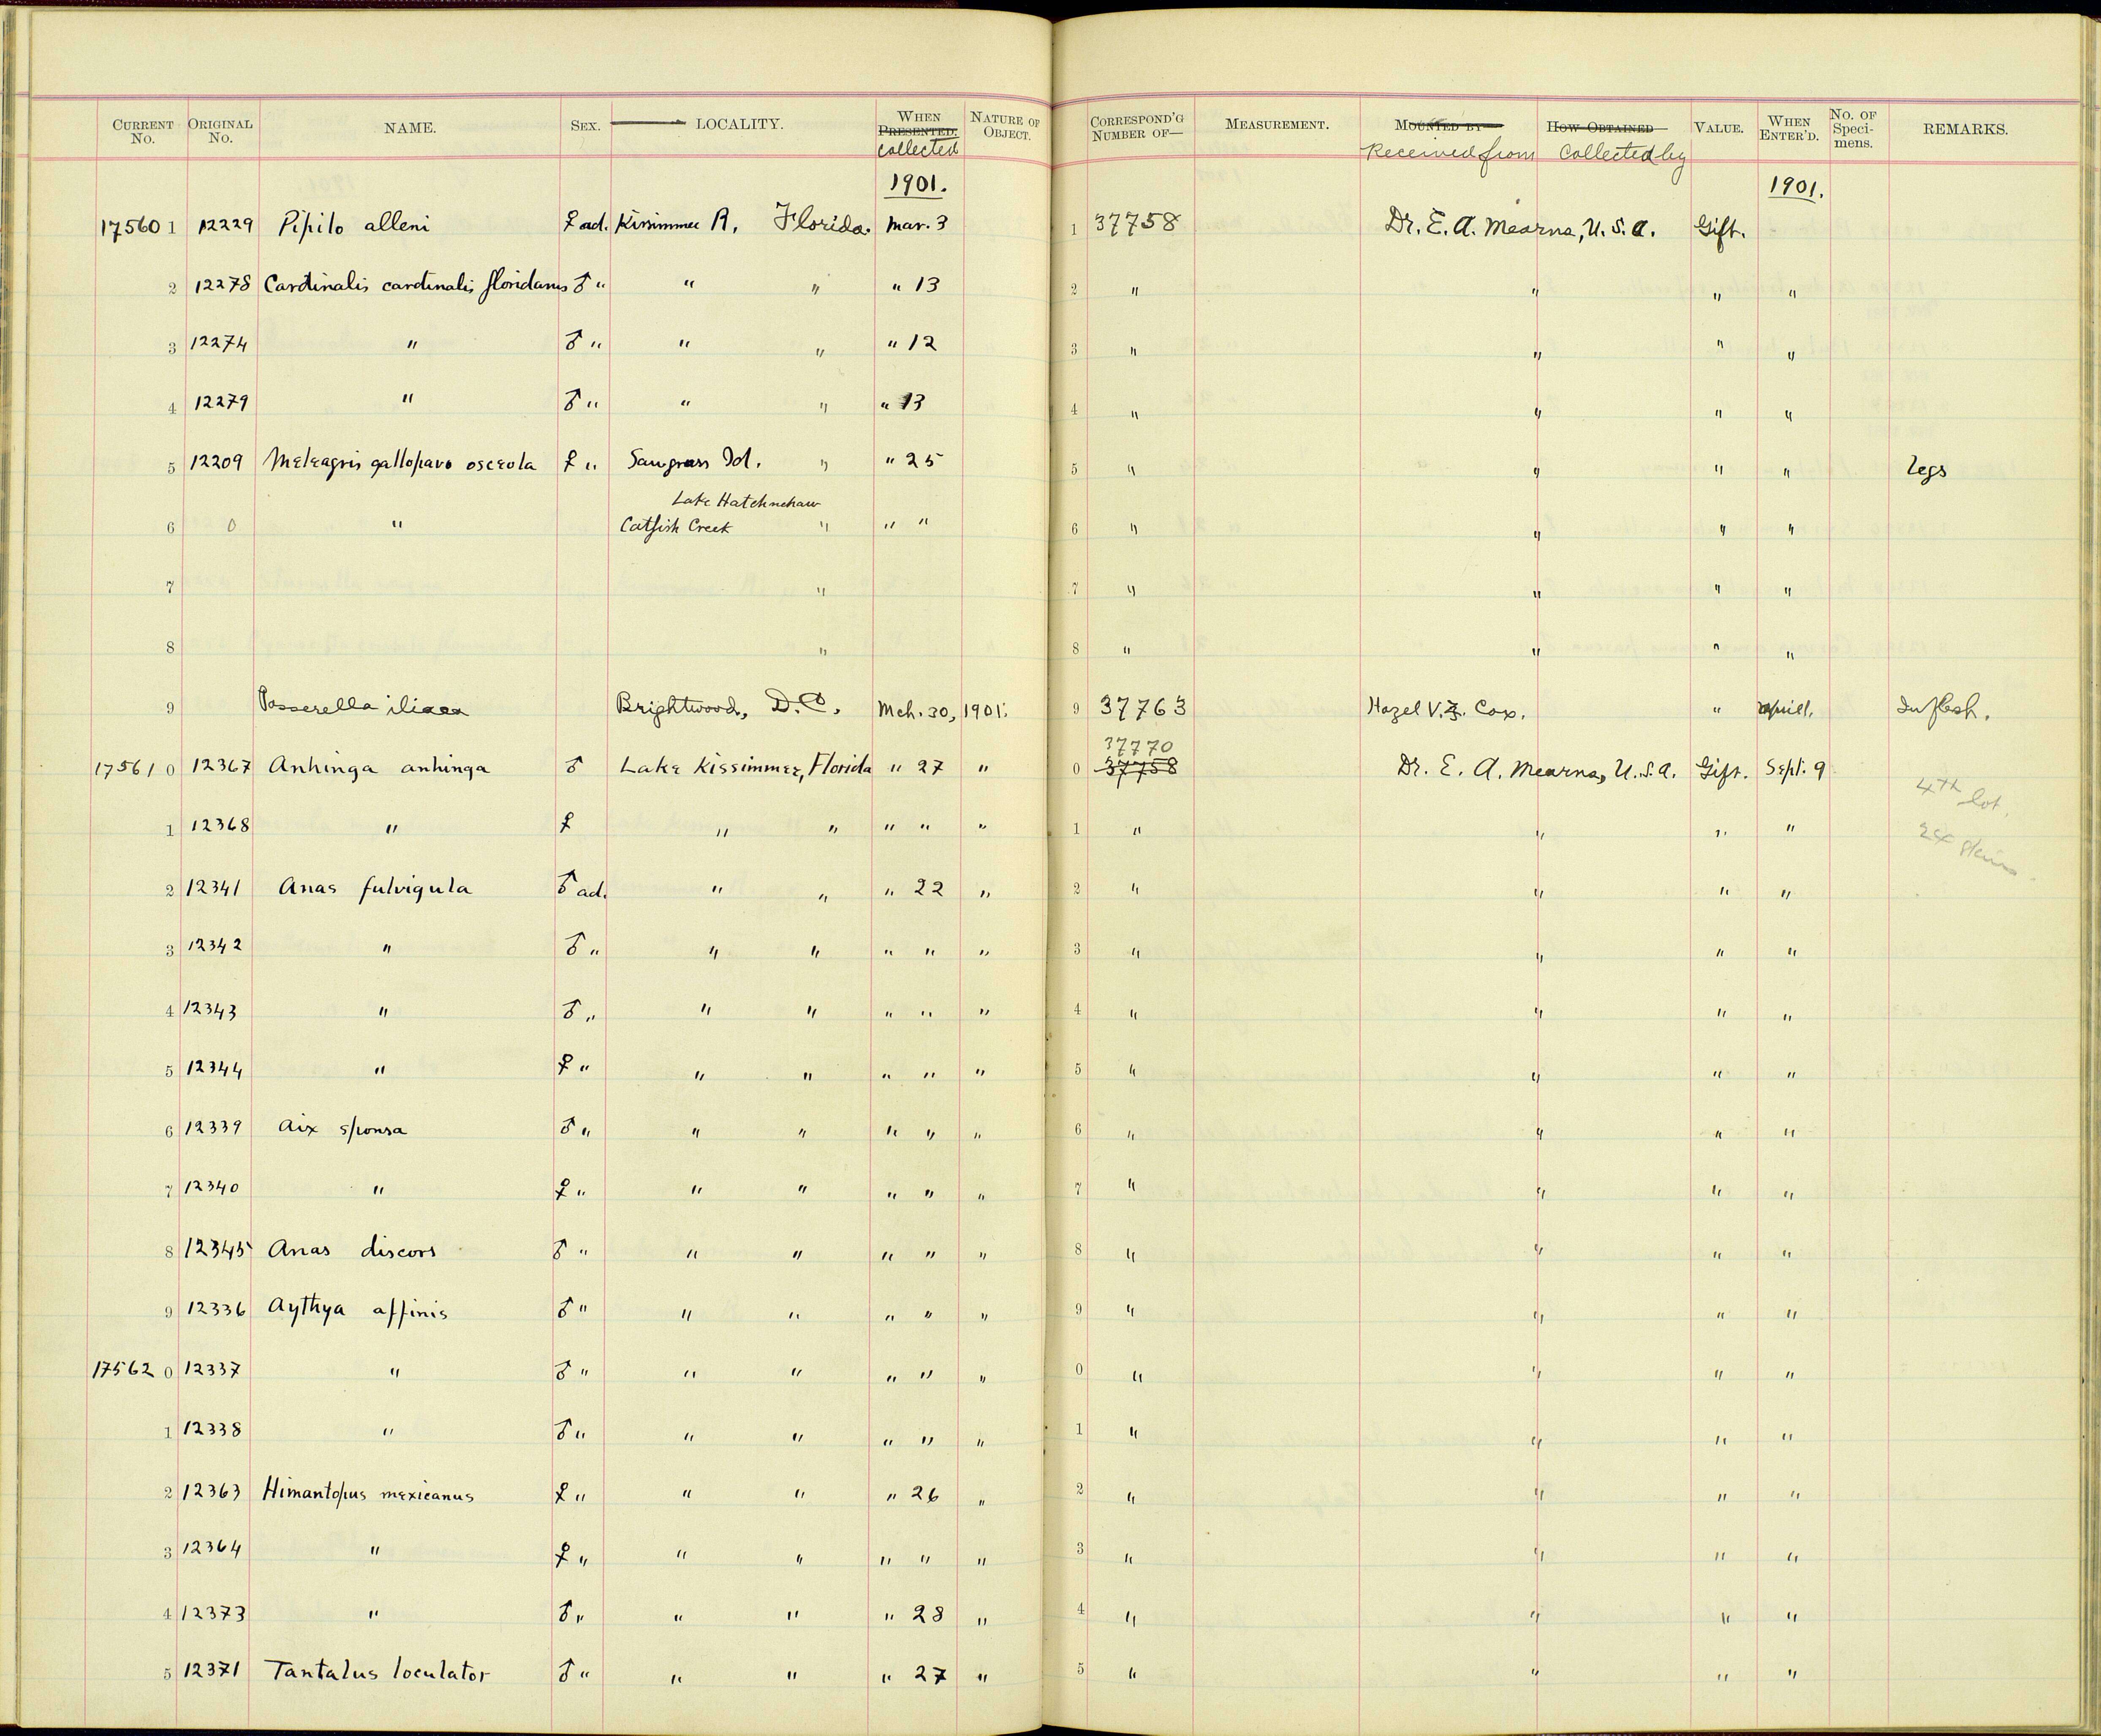 CURRENT No. ORIGINAL No. NAME. SEX. LOCALITY. WHEN PRESENTED. collected NATURE OF OBJECT. CORRESPOND'G NUMBER OF— MEASUREMENT. MOUNTED BY Received from HOW OBTAINED Collected by VALUE. WHEN ENTER'D. No. OF Speci-mens. REMARKS.
1901. 1901.
17560 1 12229 Pipilo alleni ♀ ad. Kissimmee R. Florida. Mar. 3 1 37758 Dr. E. A. Mearns, U. S. A. Gift.
2 12278 Cardinalis cardinalis floridanus ♂ " " " " 13 2 " " " "
3 12274 " ♂ " " " " 12 3 " " " "
4 12279 " ♂ " " " " 13 4 " " " "
5 12209 Meleagris gallopavo osceola ♀ " Sawgrass Id. " " 25 5 " " " " legs
Lake Hatchnehaw
6 0 " Catfish Creek " " " 6 " " " "
7 " 7 " " " "
8 " 8 " " " "
9 Passerella iliaca Brightwood, D.C. Mch. 30, 1901. 9 37763 Hazel V. Z. Cox. " April, In flesh.
37770
17561 0 12367 Anhinga anhinga ♂ Lake Kissimmee, Florida " 27 " 0 37758 Dr. E. A. Mearns, U.S.A. Gift. Sept. 9
4th lot.
1 12368 " ♀ " " " " " 1 " " " "
24 skins
2 12341 Anas fulvigula ♂ ad. " " " 22 " 2 " " " "
3 12342 " ♂ " " " " " " 3 " " " "
4 12343 " ♂ " " " " " " 4 " " " "
5 12344 " ♀ " " " " " " 5 " " " "
6 12339 Aix sponsa ♂ " " " " " " 6 " " " "
7 12340 " ♀ " " " " " " 7 " " " "
8 12345 Anas discors ♂ " " " " " " 8 " " " "
9 12336 Aythya affinis ♂ " " " " " " 9 " " " "
17562 0 12337 " ♂ " " " " " " 0 " " " "
1 12338 " ♂ " " " " " " 1 " " " "
2 12363 Himantopus mexicanus ♀ " " " " 26 " 2 " " " "
3 12364 " ♀ " " " " " " 3 " " " "
4 12373 " ♂ " " " " 28 " 4 " " " "
5 12371 Tantalus loculator ♂ " " " " 27 " 5 " " " "